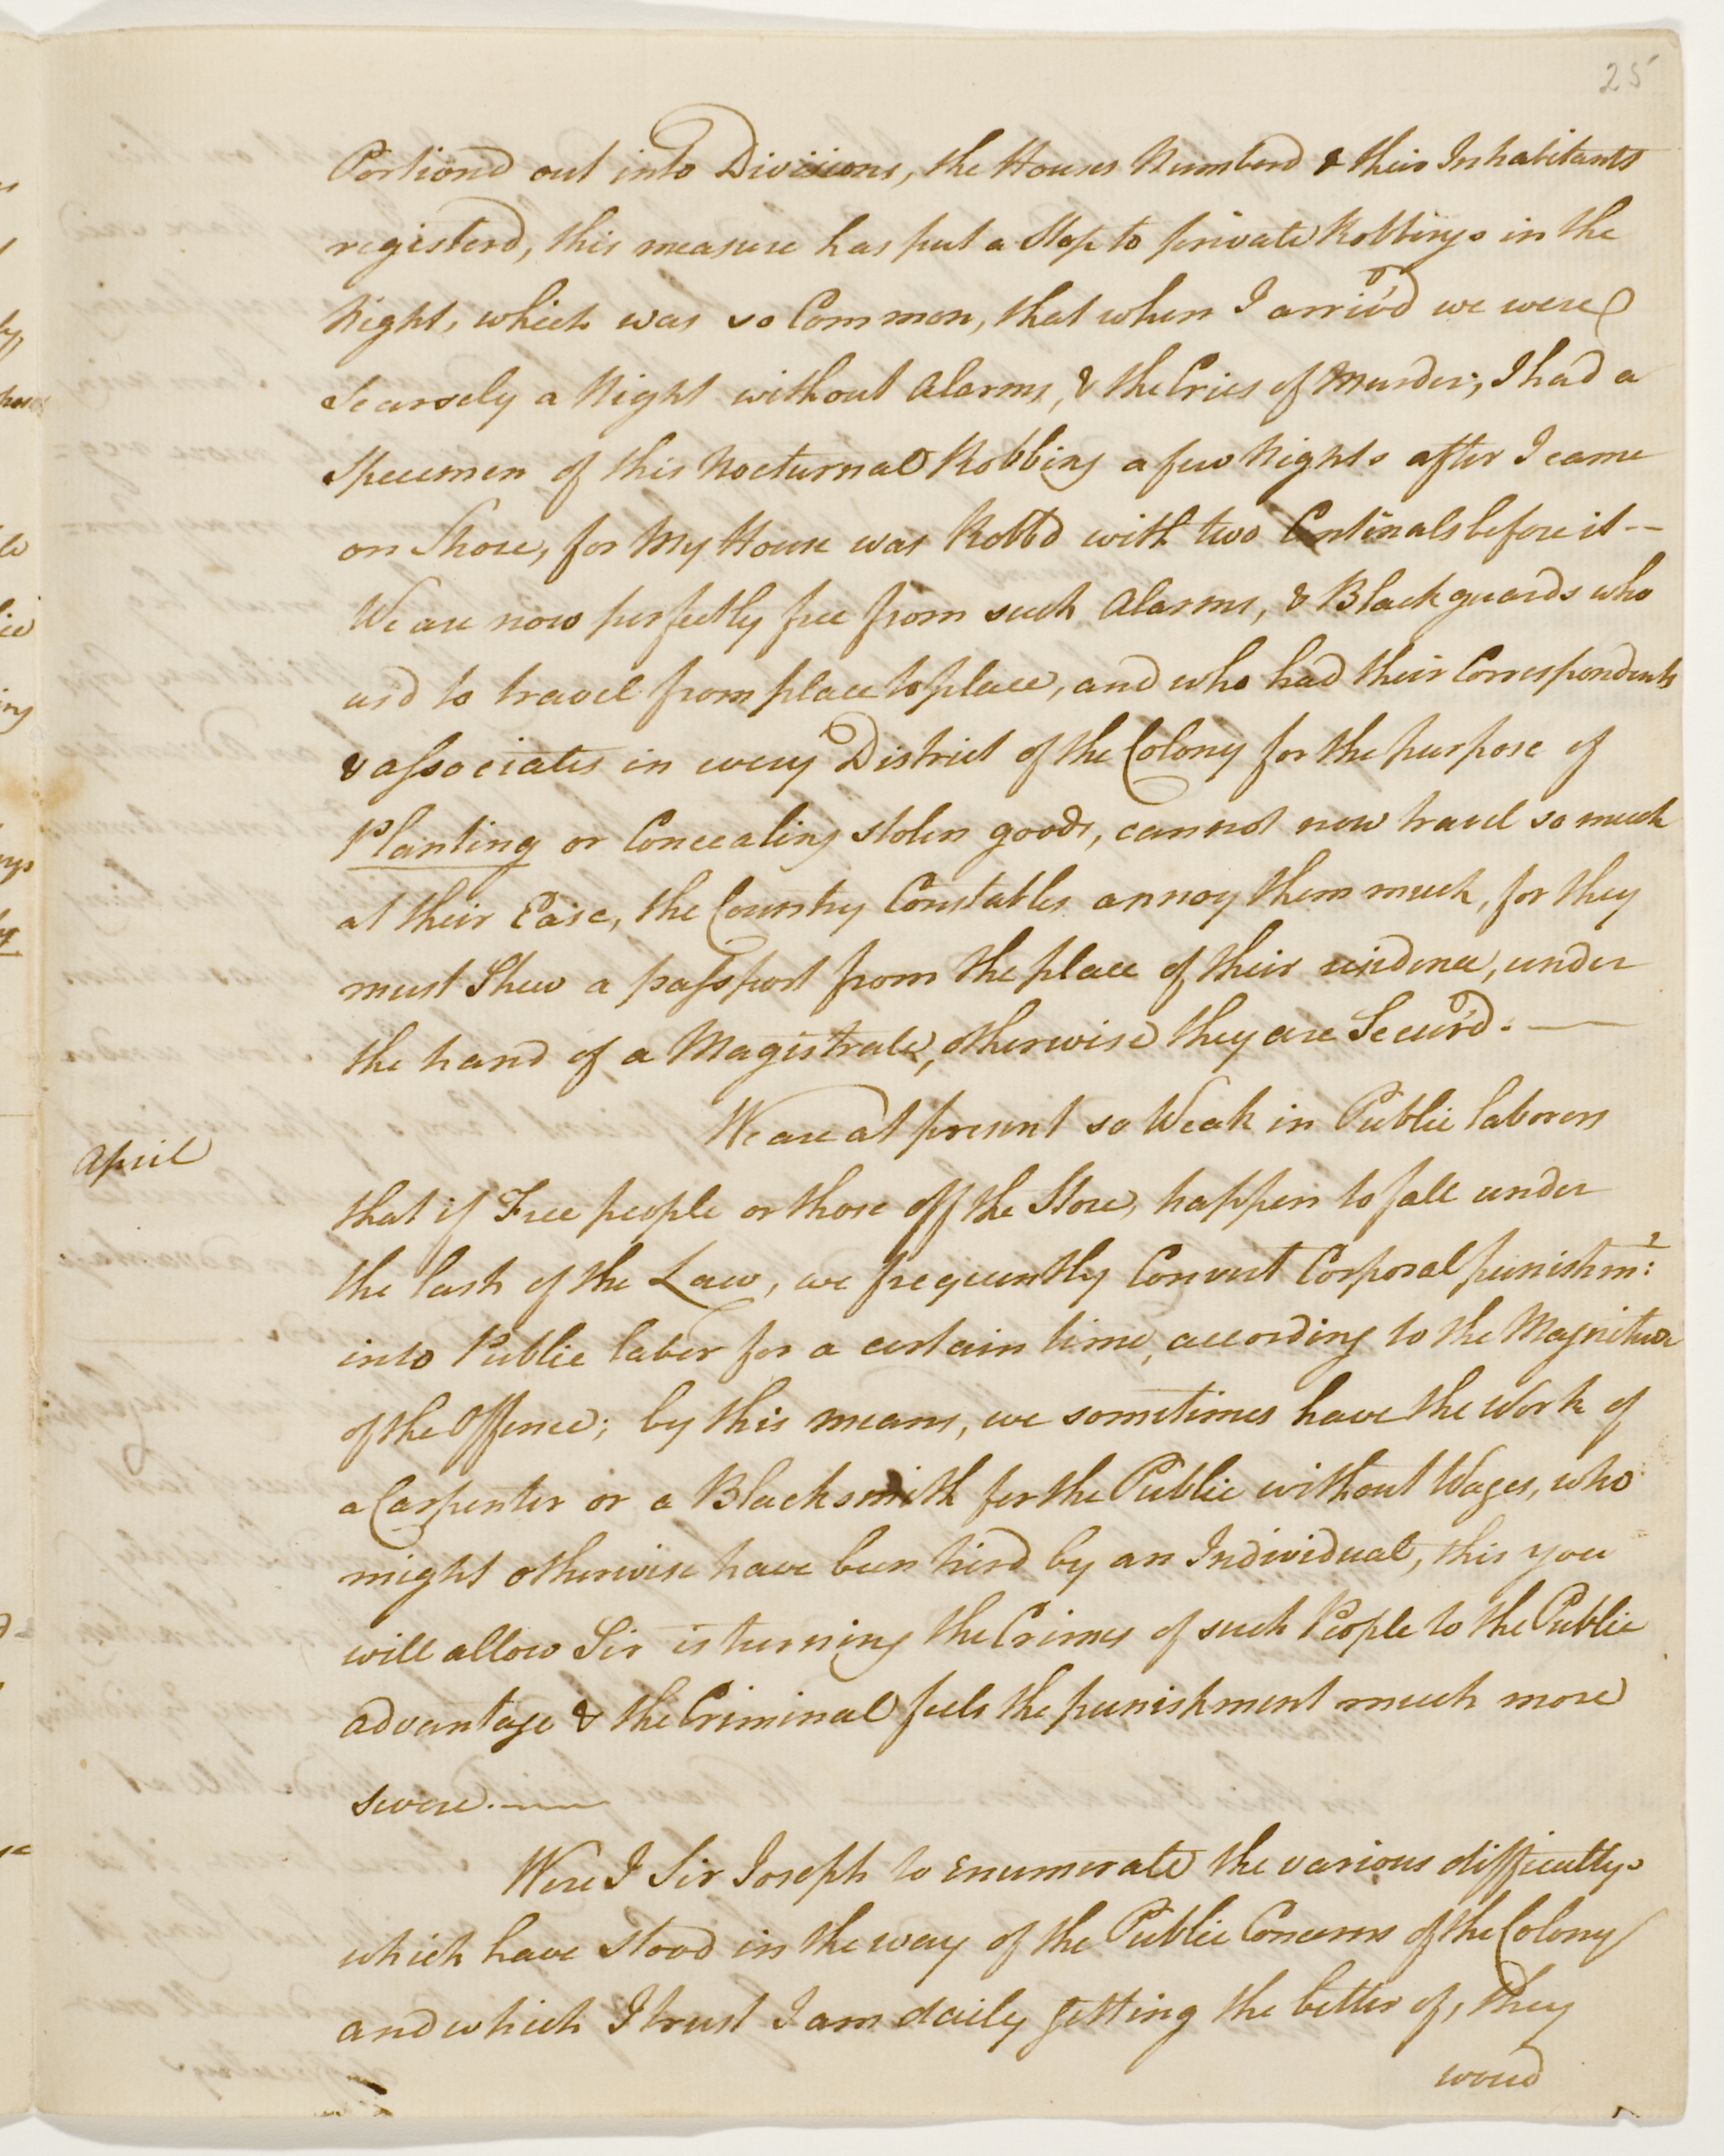 25
Portiond out into Divisions, the Houses Numberd & their Inhabitants
registerd, this measure has put a Stop to private Robbings in the
Night, which was so Common, that when I arriv'd we were
Scarsely a Night without Alarms, & the Cries of Murder; I had a
Specimen of this Nocturnal Robbing a few Nights after I came
on Shore, for My House was Robb'd with two Centinals before it —
We are now perfectly free from such Alarms, & Blackguards who
us'd to travel from place to place, and who had their Correspondents
& associates in every District of the Colony for the purpose of
Planting or Concealing stolen goods, cannot now travel so much
at their Ease, the Country Constables annoy them much, for they
must Shew a passport from the place of their residence, under
the hand of a Magistrate, otherwise they are Secur'd. —
We are at present so Weak in Public laborers
April
that if Free people or those off the Store, happen to fall under
the lash of the Law, we frequently Convert Corporal punishm:t
into Public labor for a certain time, according to the Magnitude
of the Offence; by this means, we sometimes have the Work of
a Carpenter or a Blacksmith for the Public without Wages, who
might otherwise have been hired by an Individual, this you
will allow Sir is turning the Crimes of such People to the Public
advantage & the Criminal feels the punishment much more
severe. —
Were I Sir Joseph to enumerate the various difficultys
which have stood in the way of the Public Concerns of the Colony
and which I trust I am daily getting the better of, they
woud